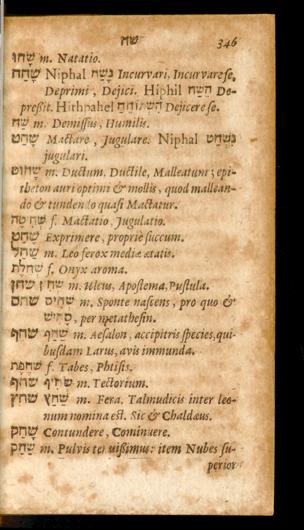 שח 346
שָׂחוּ m. Natatio.
שָׁחַח Niphal נָשַׁח Incurvari, Incurvare se,
Deprimi, Dejici. Hiphil הֵשַׁח De-
pressit. Hithpahel Dejicere se.
שַׁח m. Demissus, Humilis.
שָׁחַט Mactare, Jugulare. Niphal נִשְׁחַט
jugulari.
שָׁחוּט m. Ductum, Ductile, Malleatum; epi-
theton auri optimi & mollis, quod mallean-
do & tundendo quasi Mactatur.
שְׁחִיטָה f. Mactatio, Jugulatio.
שָׂחַט Exprimere, propriè succum.
שַׁחַל m. Leo ferox mediæ ætatis.
שְׁחֵלֶת f. Onyx aroma.
שחן שְׁחִין m. Ulcus, Apostema, Pustula.
שחס שָׁחִיס m. Sponte nascens, pro quo &
סָחִישׁ, per metathesin.
שחף שַׁחַף m. Aesalon, accipitris species, qui-
busdam Larus, avis immunda.
שַׁחֶפֶת f. Tabes, Phtisis.
שחף שְׂחִיף m. Tectorium.
שחץ שַׁחַץ m. Fera. Talmudicis inter leo-
num nomina est. Sic & Chaldæus.
שָׁחַק Contundere, Cominuere.
שַׁחַק m. Pulvis tenuissimus: item Nubes su-
perior